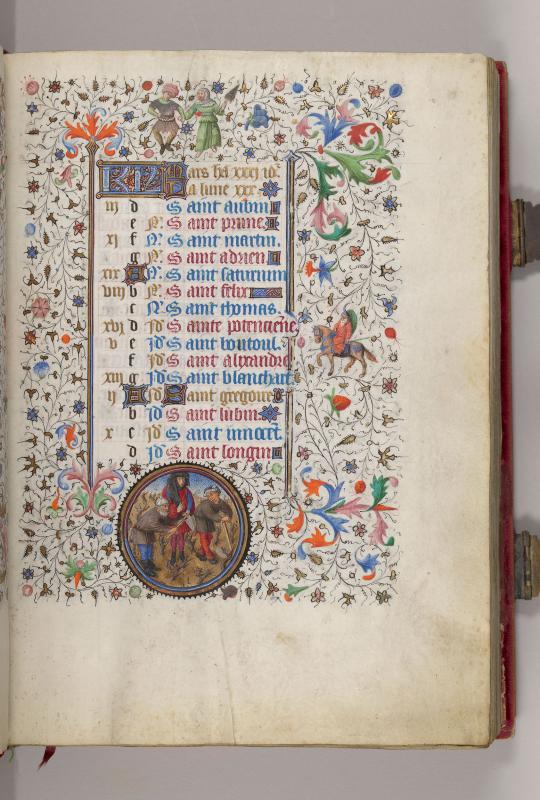 KL Mars ha xxxj io^s
La lune xxx.
iij d S aint aubin
e N. S aint prime.
xj f N. S aint martin.
g N. S aint adrien
xix A N. S aint saturnin
viij b N. S aint felix
c N. S aint thomas.
xvj d Jd S ainte potencien̄e.
v e Jd S aint boutoul.
f Jd S aint alixandre
xiij g Jd S aint blanchart
ij A Jd S aint gregoire
b Jd S aint lubin.
x c Jd S aint innocent.
d Jd S aint longin